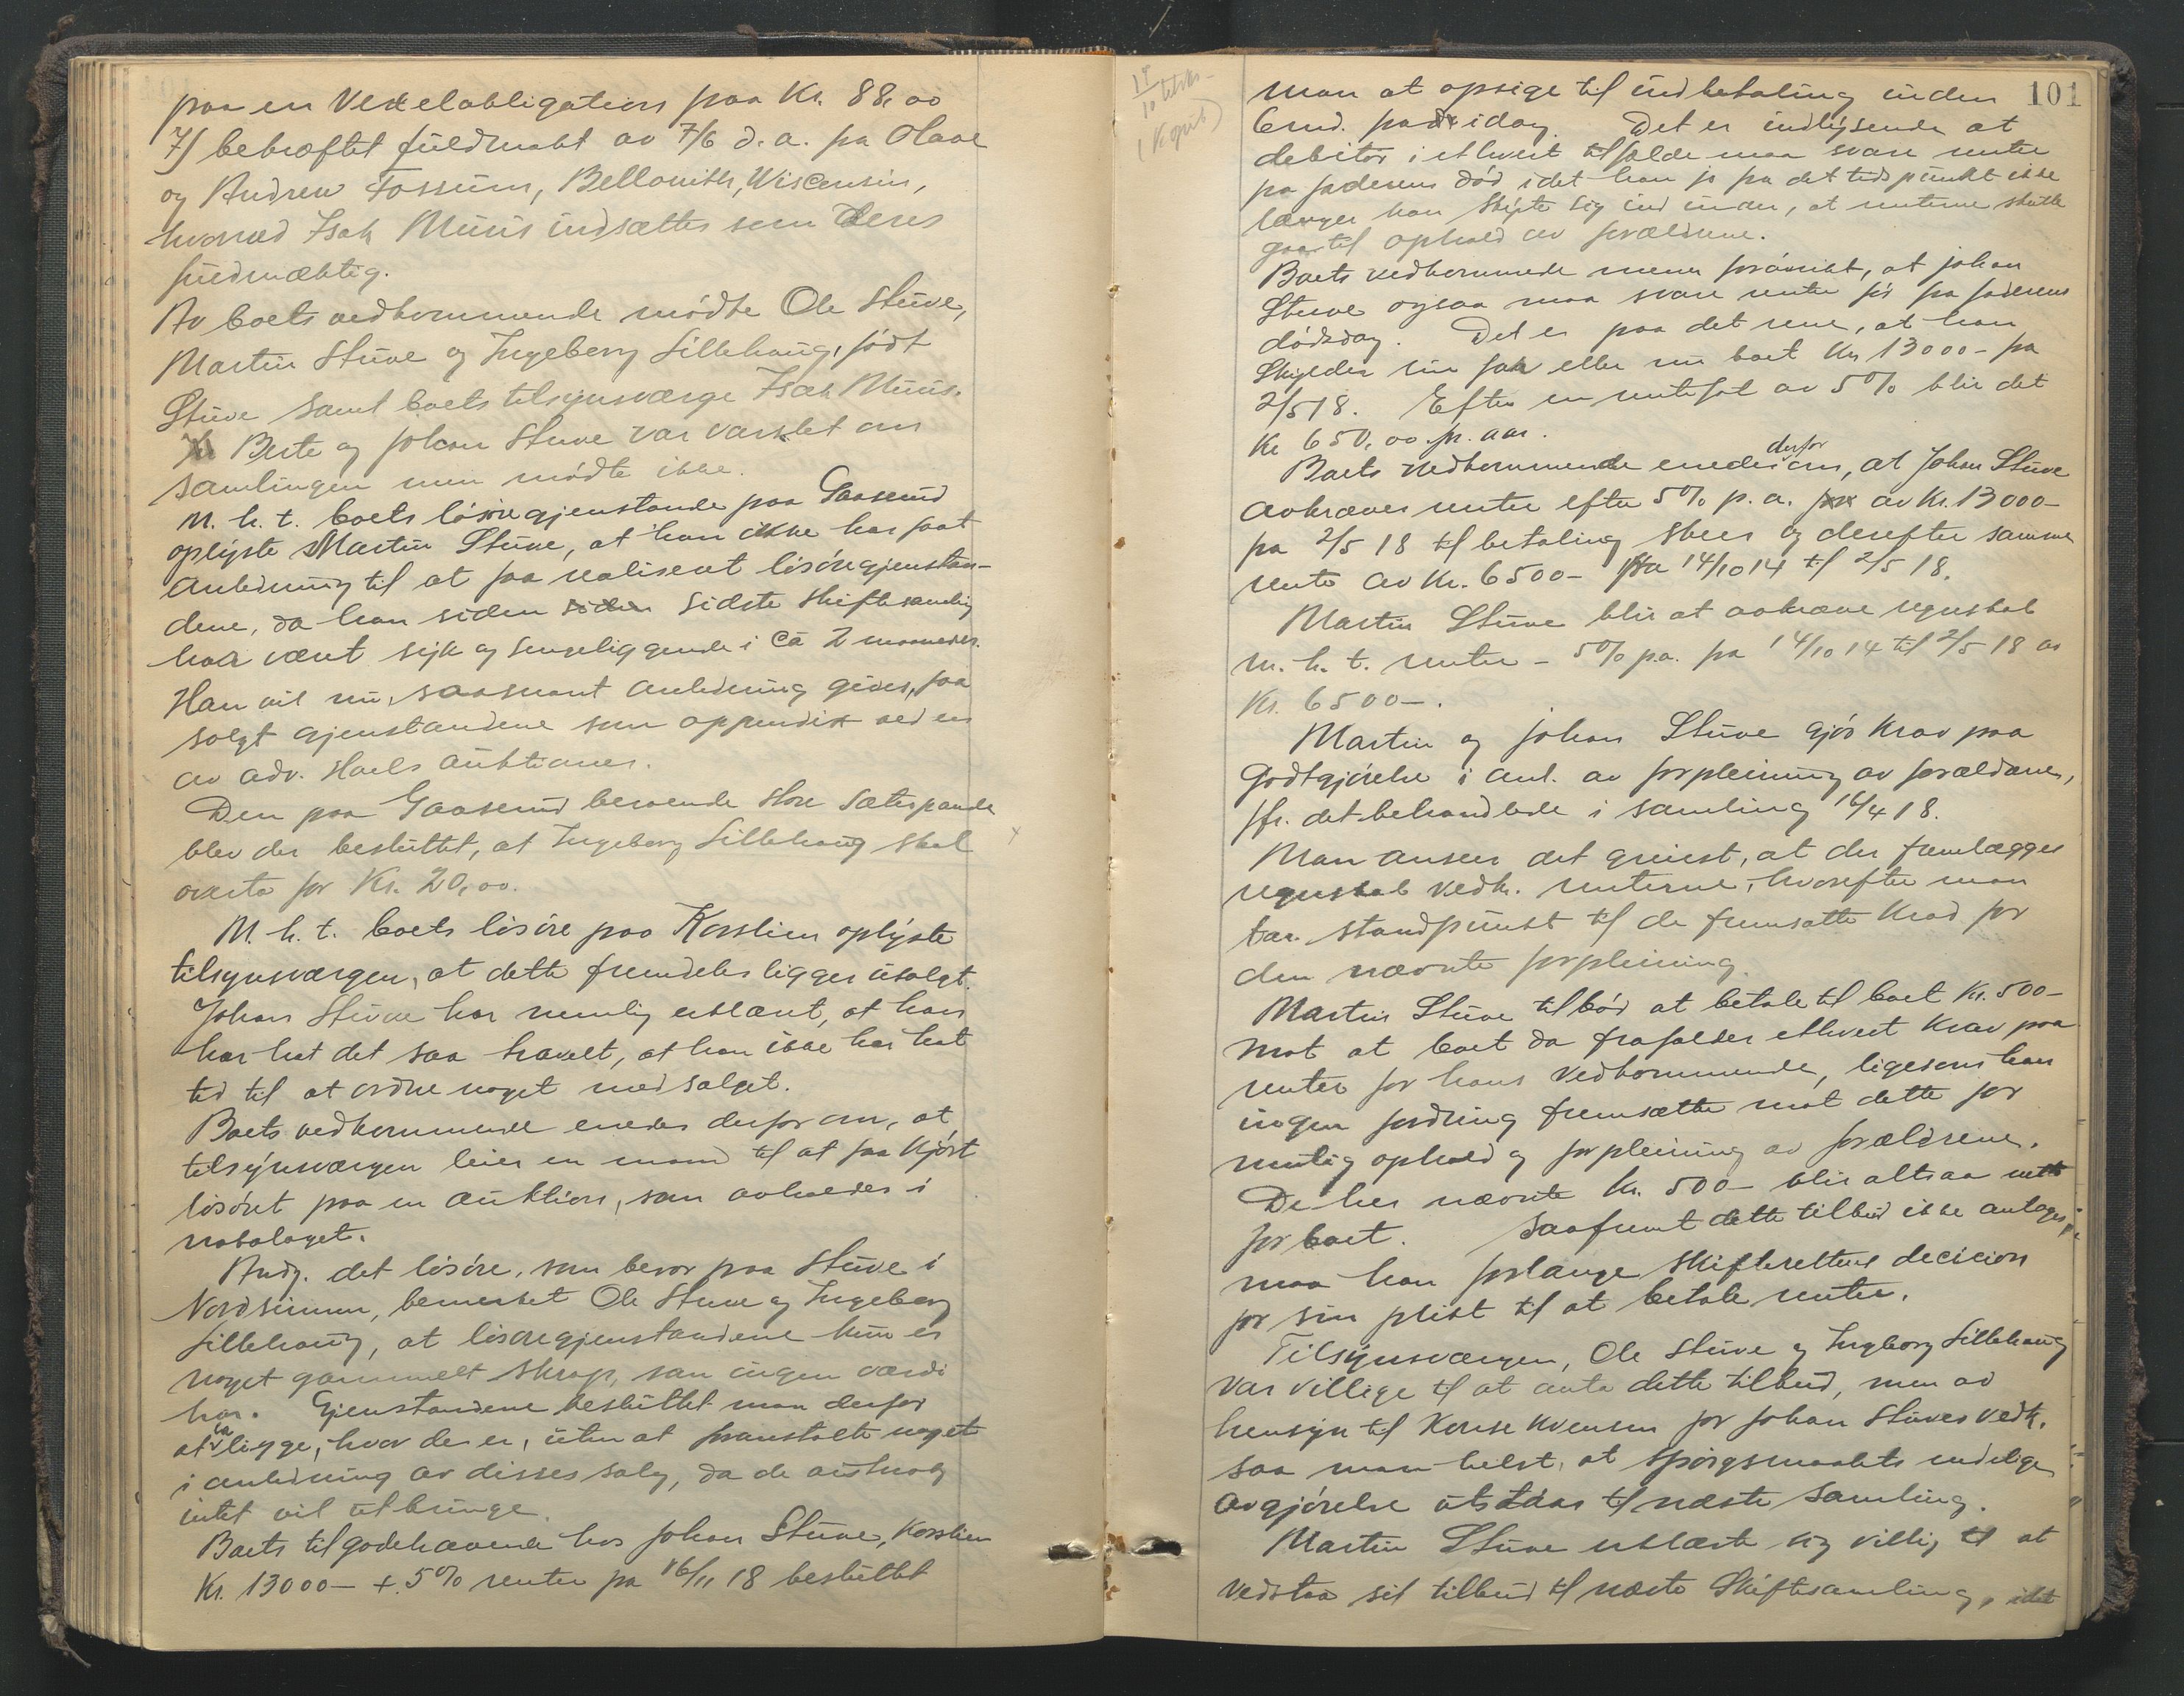 paa en Vexelobligation paa Kr. 88,00
7/ bekræftet fuldmakt av 7/6 d.a. fra Olaue
og Andrew Fossum, Bellowith, Wiscensin,
hvorved Isak Muus indsættes som deres
fuldmægtig.
Av boets vedkommende mødte Ole Stuve,
Martin Stuve og Ingeborg Lillehaug, født
Stuve samt boets tilsynsværge Isak Muus.
Berte og Johan Stuve var varslet om
samlingen men mødte ikke.
M. h. t. boets løsøregjenstande paa Gaaserud
oplyste Martin Stuve, at han ikke har faat
anledning til at faa realisert løsøregjenstan-
dene, da han siden siden sidste skiftesamling
har vært syk og sengeliggende i ca 2 maaneder.
Han vil nu, saasnart anledning gives, faa
solgt gjenstandene som appendix ved en
av adv. Hoels auktioner.
Den paa Gaaserud beroende store sæterpande
blev der besluttet, at Ingeborg Lillehaug skal
overta for Kr. 20,00.
M. h. t. boets løsøre paa Korslien oplyste
tilsynsværgen, at dette fremdeles ligger usolgt.
Johan Stuve har nemlig erklært, at han
har hat det saa travelt, at han ikke har hat
tid til at ordne noget med salget.
Boets vedkommende enedes derfor om, at
tilsynsværgen leier en mand til at faa kjørt
løsøret paa en auktion, som avholdes i
nabolaget.
Andg. det løsøre, som beror paa Stuve i
Nordsinnen, bemerket Ole Stuve og Ingeborg
Lillehaug, at løsøregjenstandene kun er
noget gammelt skrap, som ingen værdi
har. Gjenstandene besluttet man derfor
at la ligge, hvor de er, uten at foranstalte noget
i anledning av disses salg, da de antak
intet vil utbringe.
Boets tilgodehavende hos Johan Stuve, Korslien
Kr. 13000- + 5% renter fra 16/11 18 besluttet
17/10 
101
man at opsige til indbetaling inden
6 md. fra idag. Det er indlysende at
debitor i ethvert tilfælde maa svare renter
fra faderens død idet han jo fra det tidspunkt ikke
længer kan skyte sig ind under, at renterne skulle
gaa til ophold av forældrene.
Boets vedkommende mener forøvrikt, at Johan
Stuve ogsaa maa svare renter før fra faderens
dødsdag. Det er paa det rene, at han
skylder sin far eller nu boet Kr 13000- fra
2/5 18. Efter en rentefot av 5% blir det
Kr 650,00 pr. aar.
Boets vedkommende enedes derfor om, at Johan Stuve
avkræves renter efter 5% p.a. av Kr. 13000-
fra 2/5 18 til betaling skeer og derefter samme
rente av Kr. 6500- fra 14/10 14 til 2/5 18.
Martin Stuve blir at avkræve regnskab
m. h. t. renter - 5% p.a. fra 14/10 14 til 2/5 18 av
Kr. 6500-.
Martin og Johan Stuve gjør krav paa
Godtgjørelse i anl. av forpleining av forældrene,
jfr. det behandlede i samling 16/4 18.
Man anseer det greiest, at der fremlægges
regnskab vedk. renterne, hvorefter man
tar standpunkt til de fremsatte krav for
den nævnte forpleining.
Martin Stuve tilbød at betale til boet Kr. 500-
mot at boet da frafalder ethvert krav paa
renter for hans vedkommende, ligesom han
ingen fordring fremsætter mot dette for
mulig ophold og forpleining av forældrene.
De her nævnte Kr. 500- blir altsaa netto
for boet. Saafremt dette tilbud ikke antages,
maa han forlange skifterettens decision
for sin plikt til at betale renter.
Tilsynsværgen, Ole Stuve og Ingeborg Lillehaug
var villige til at anta dette tilbud, men av
hensyn til konsekvensen for Johan Stuves vedk.
saa man helst, at spørgsmaalets endelige
avgjørelse utstaar til næste samling.
Martin Stuve erklærte sig villig til at
vedstaa sit tilbud til næste skiftesamling, idet